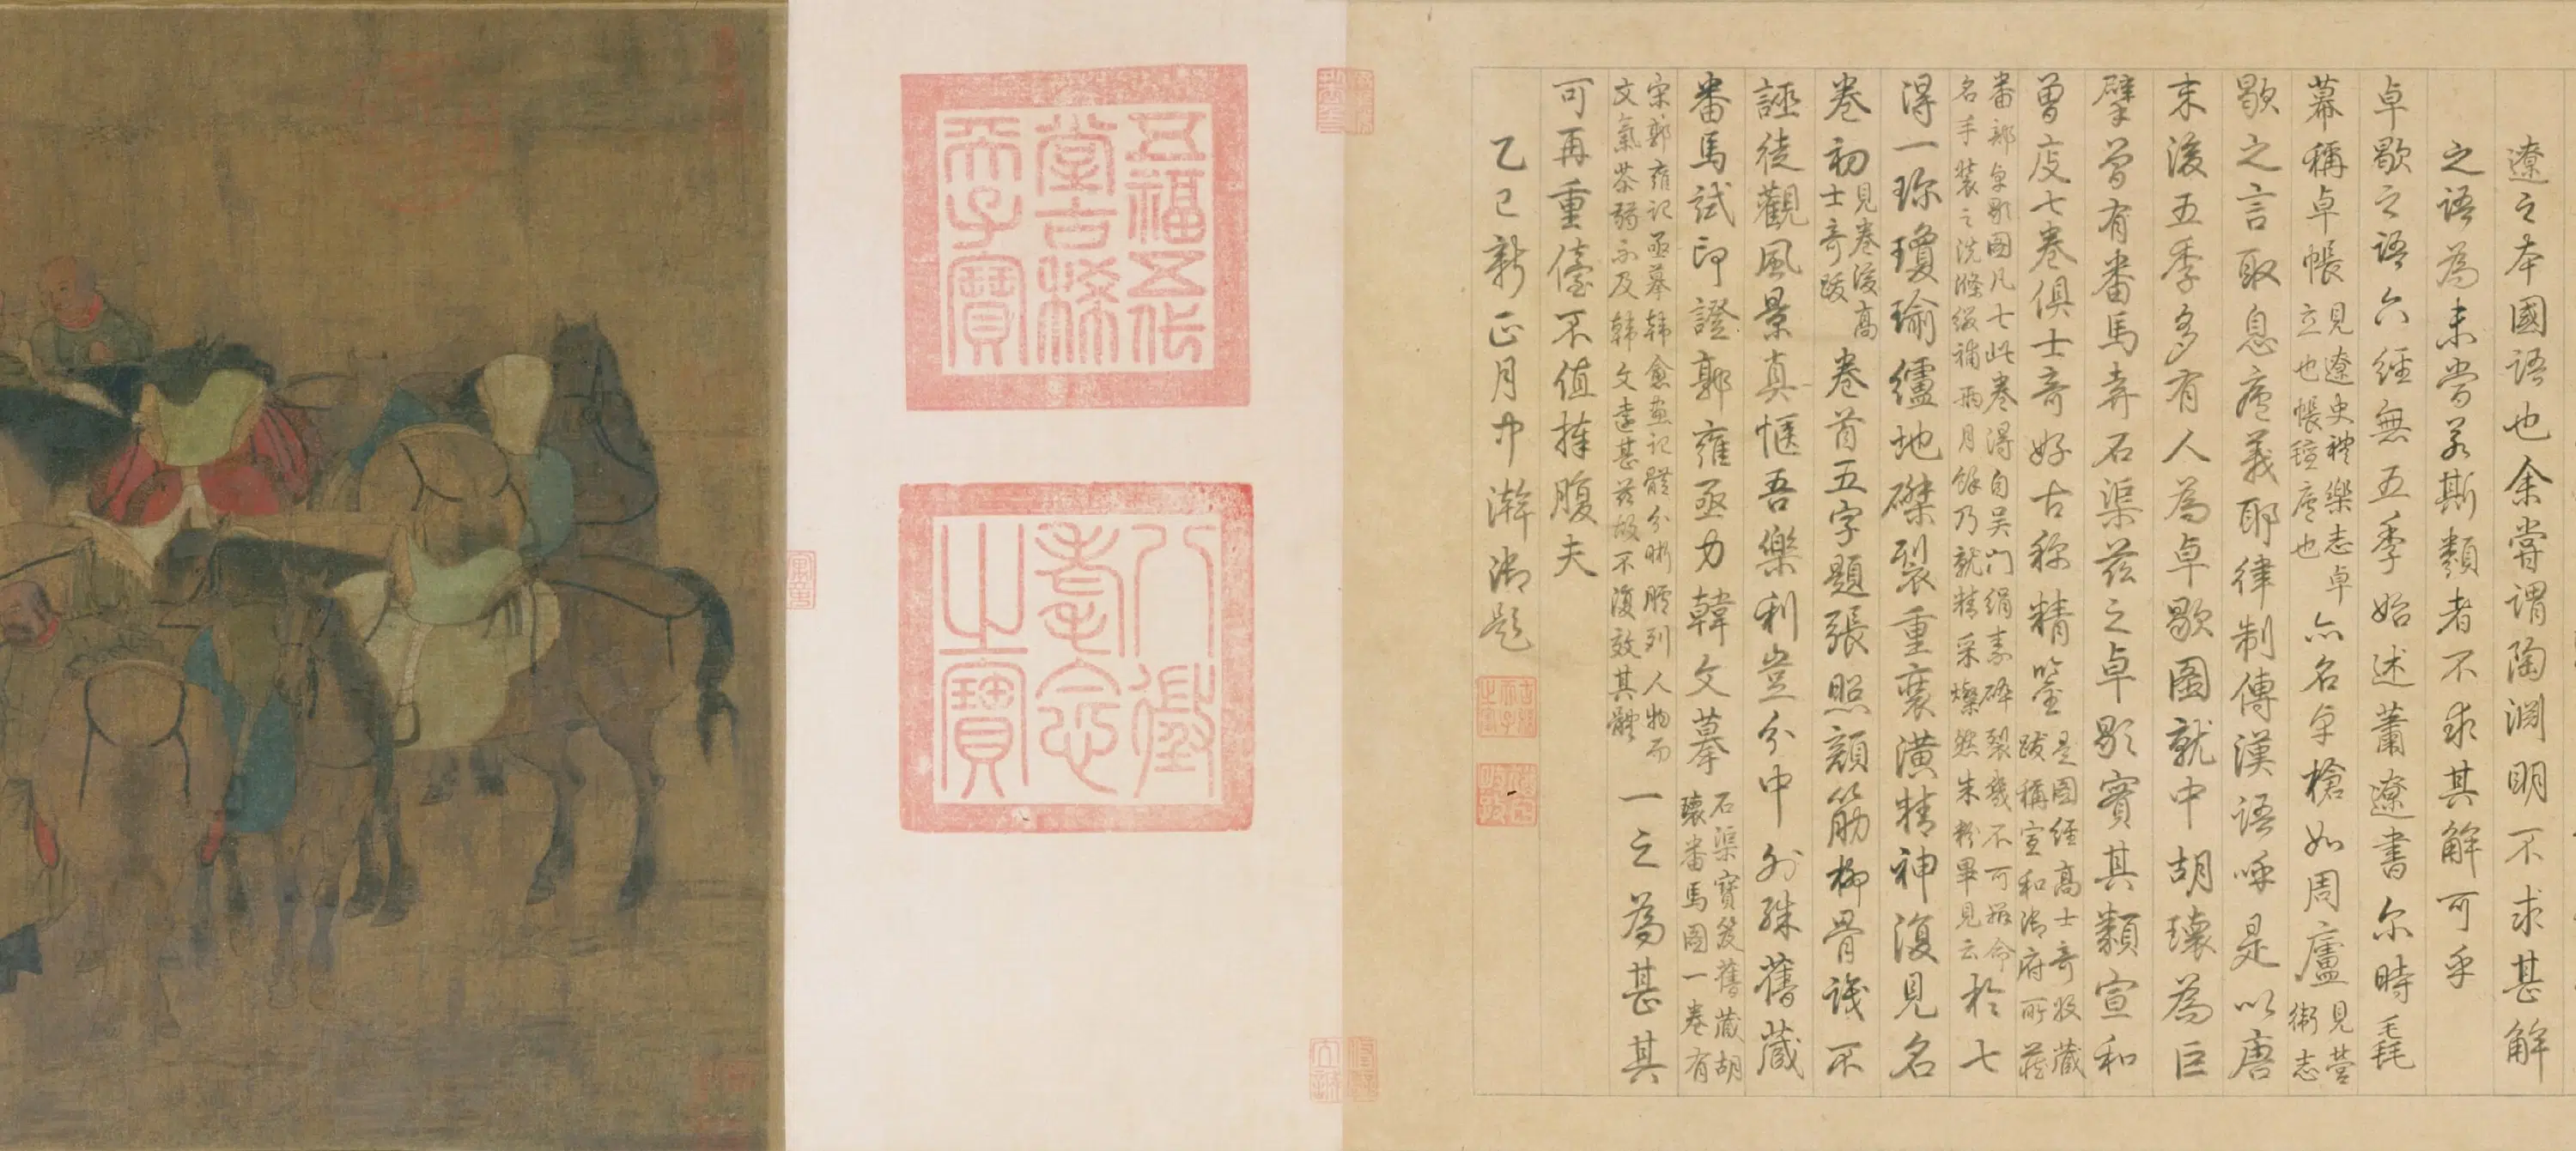 遼之本國語也余嘗謂陶淵明不求甚解
之語為未嘗若斯類者不求其解可乎
卓歇之語六經無五季始述蕭遼書尔時毳
幕稱卓帳見遼史禮樂志卓立也帳氊廬也亦名卓槍如周廬見營衛志
歇之言取息義耶律制傳漢語呼是以唐
末後五季多有人為卓歇圖就中胡瓌為巨
擘曾有番馬弆石渠茲之卓歇實其類宣和
曾庋七卷俱士奇好古称精鑒是圖經高士奇收藏跋稱宣和御府所藏
番部卓歇圖凡七此卷得自吴門絹素碎裂幾不可命名手裝之洗滌綴補兩月餘乃就精采燦然朱粉畢見云於七
得一珎瓊瑜地磔裂重裝潢精神復見名
卷初見卷後高士奇跋卷首五字題張照顏筋柳骨識不
誣徒觀風景真愜吾樂利豈分中外殊舊藏
番馬試印證郭雍亟力韓文摹石渠寶笈舊藏胡瓌番馬圖一卷有
宋郭雍記亟摹韓愈畫記體分晰臚列人物而文氣苶弱不及韓文遠甚茲故不復效其體一之為甚其
可再重儓不值捧腹夫
乙巳新正月中澣御題
古稀天子之寶
猶日孜孜
五福五代堂古稀天子寶
八徵耄念之寶